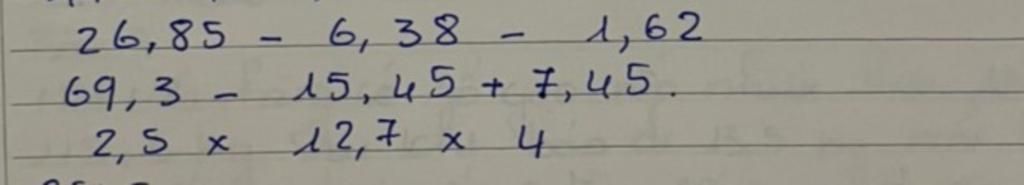 26,85 - 6,38 - 1,62
69,3 - 15,45 + 7,45.
2,5 x 12,7 x 4